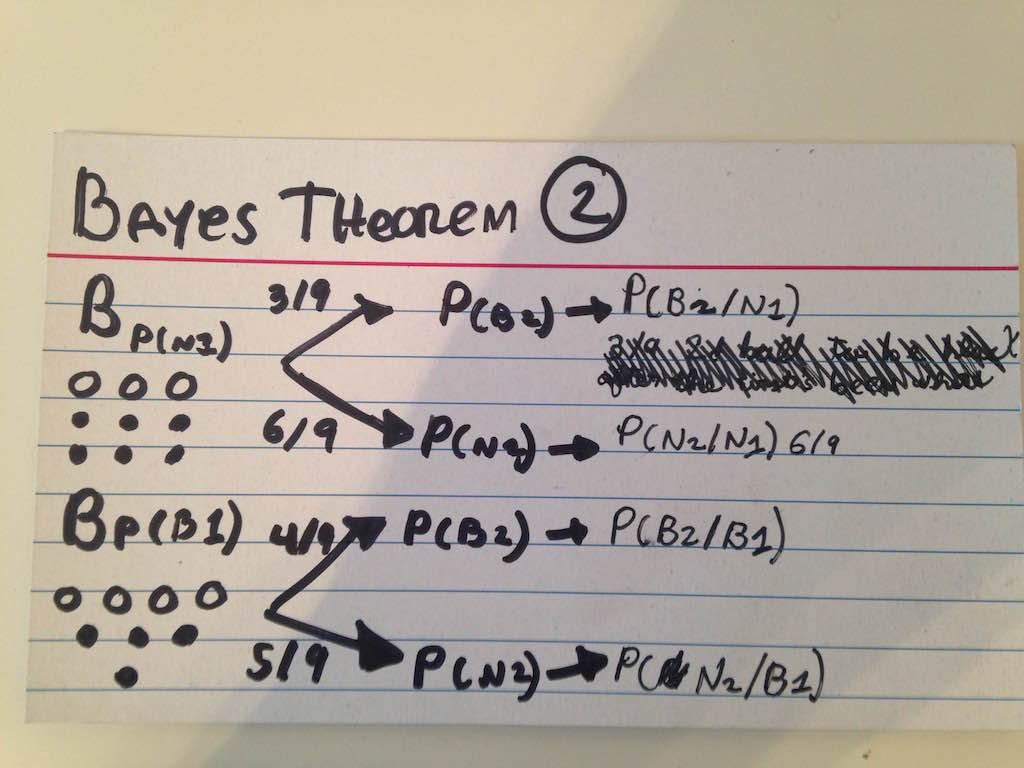 BAYES THEOREM 2
B P(N1) 3/9 P(B2) P(B2/N1)
6/9 P(N2) P(N2/N1) 6/9
B P(B1) 4/9 P(B2) P(B2/B1)
5/9 P(N2) P(N2/B1)